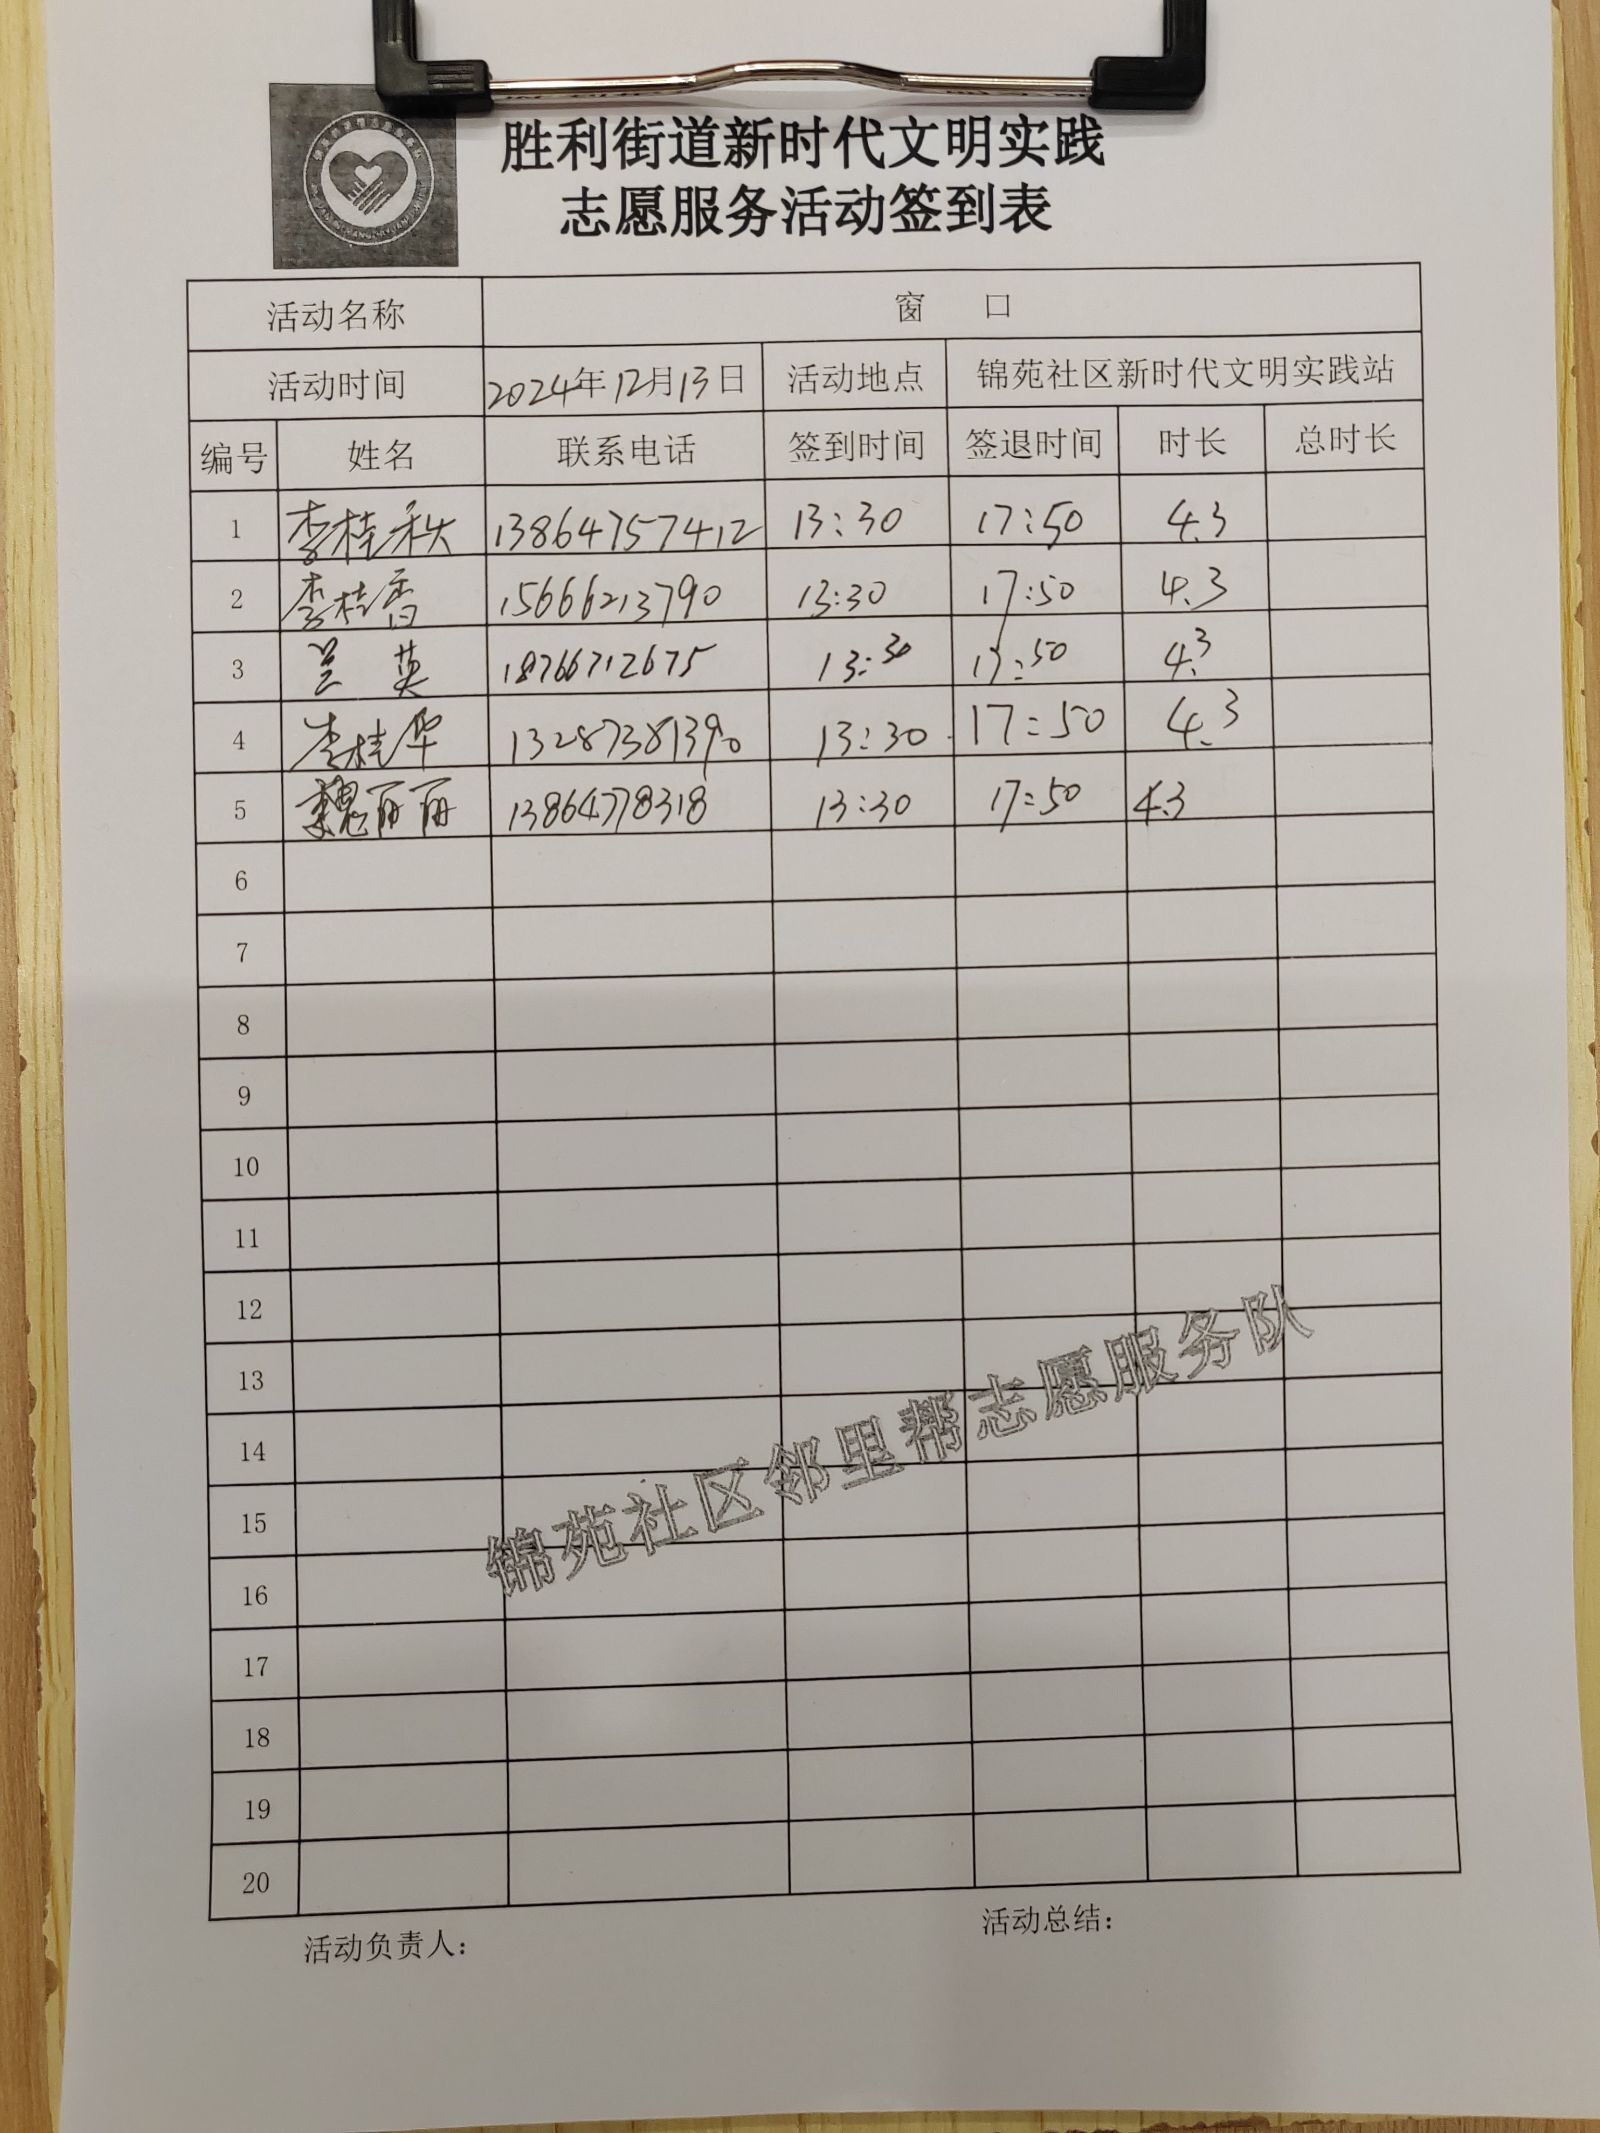 胜利街道新时代文明实践
志愿服务活动签到表
活动名称 窗 口
活动时间 2024年12月13日 活动地点 锦苑社区新时代文明实践站
编号 姓名 联系电话 签到时间 签退时间 时长 总时长
1 李桂秋 13864757412 13:30 17:50 4.3
2 李桂香 15666213790 13:30 17:50 4.3
3 兰英 18766712675 13:30 17:50 4.3
4 李桂华 13287381390 13:30 17:50 4.3
5 魏丽丽 13864778318 13:30 17:50 4.3
6
7
8
9
10
11
12
13
14
15
16
17
18
19
20
锦苑社区邻里帮志愿服务队
活动负责人： 活动总结：